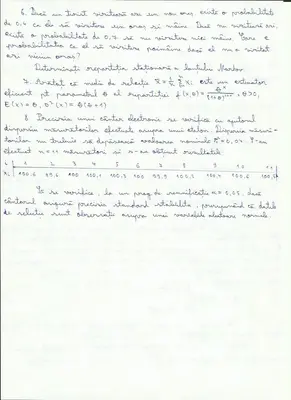 6. Dacă un turist vizitează azi un nou oraș, există o probabilitate
de 0,2 ca el să viziteze un oraș și mâine. Dacă nu vizitează azi,
există o probabilitate de 0,7 să nu viziteze nici mâine. Care e
probabilitatea ca el să viziteze poimâine dacă el n-a vizitat
azi niciun oraș?
Determinați repartiția staționară a lanțului Markov.
7. Arătați că media de selecție x̄ = 1/n Σ xi este un estimator
eficient pt parametrul θ al repartiției f(x,θ) = θ^x/(1+θ)^(x+1), θ>0,
E(X) = θ, D²(X) = θ(θ+1)
8. Precizia unui cântar electronic se verifică cu ajutorul
dispersiei măsurătorilor efectuate asupra unui etalon. Dispersia măsură-
torilor nu trebuie să depășească valoarea nominală
efectuat n = 11 măsurători și s-au obținut rezultatele
Să se verifice, la un prag de semnificație α = 0,05, dacă
cântarul asigură precizia standard stabilită, presupunând că datele
de selecție sunt observații asupra unei variabile aleatoare normale.